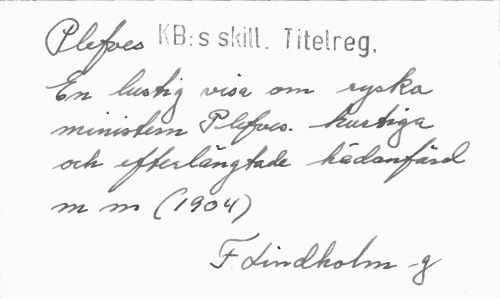 Plefves KB:s skill. Titelreg.
En lustig visa om ryska
ministern Plefves. hastiga
och efterlängtade hädanfärd
m m (1904)
F Lindholm -g